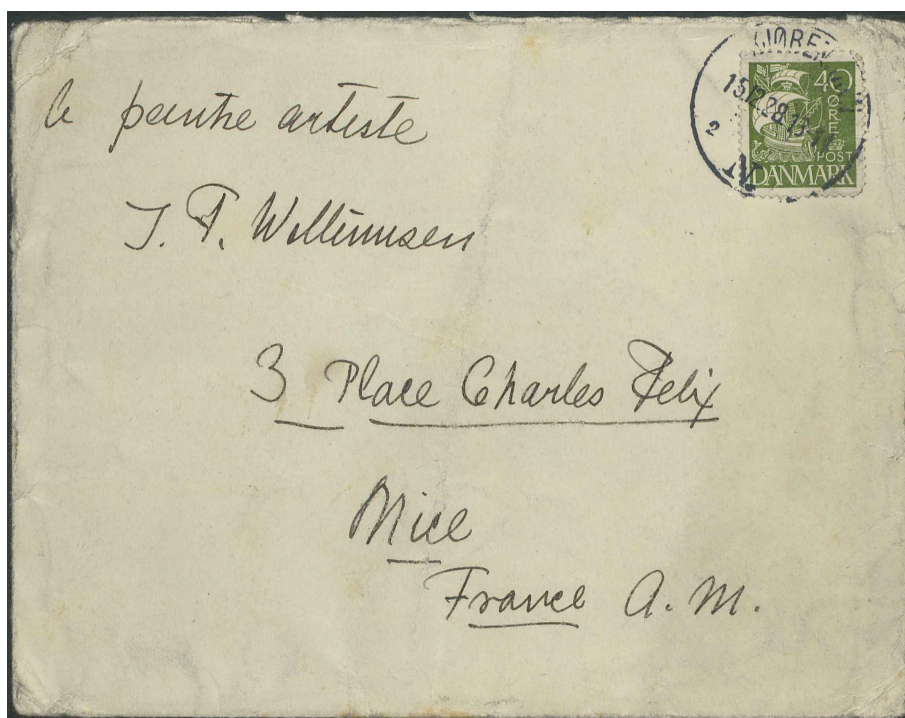 le peintre artiste
J. F. Willumsen
3 Place Charles Felix
Nice
France A. M.
40
ØRE
POST
DANMARK
15.12.28.13-
2